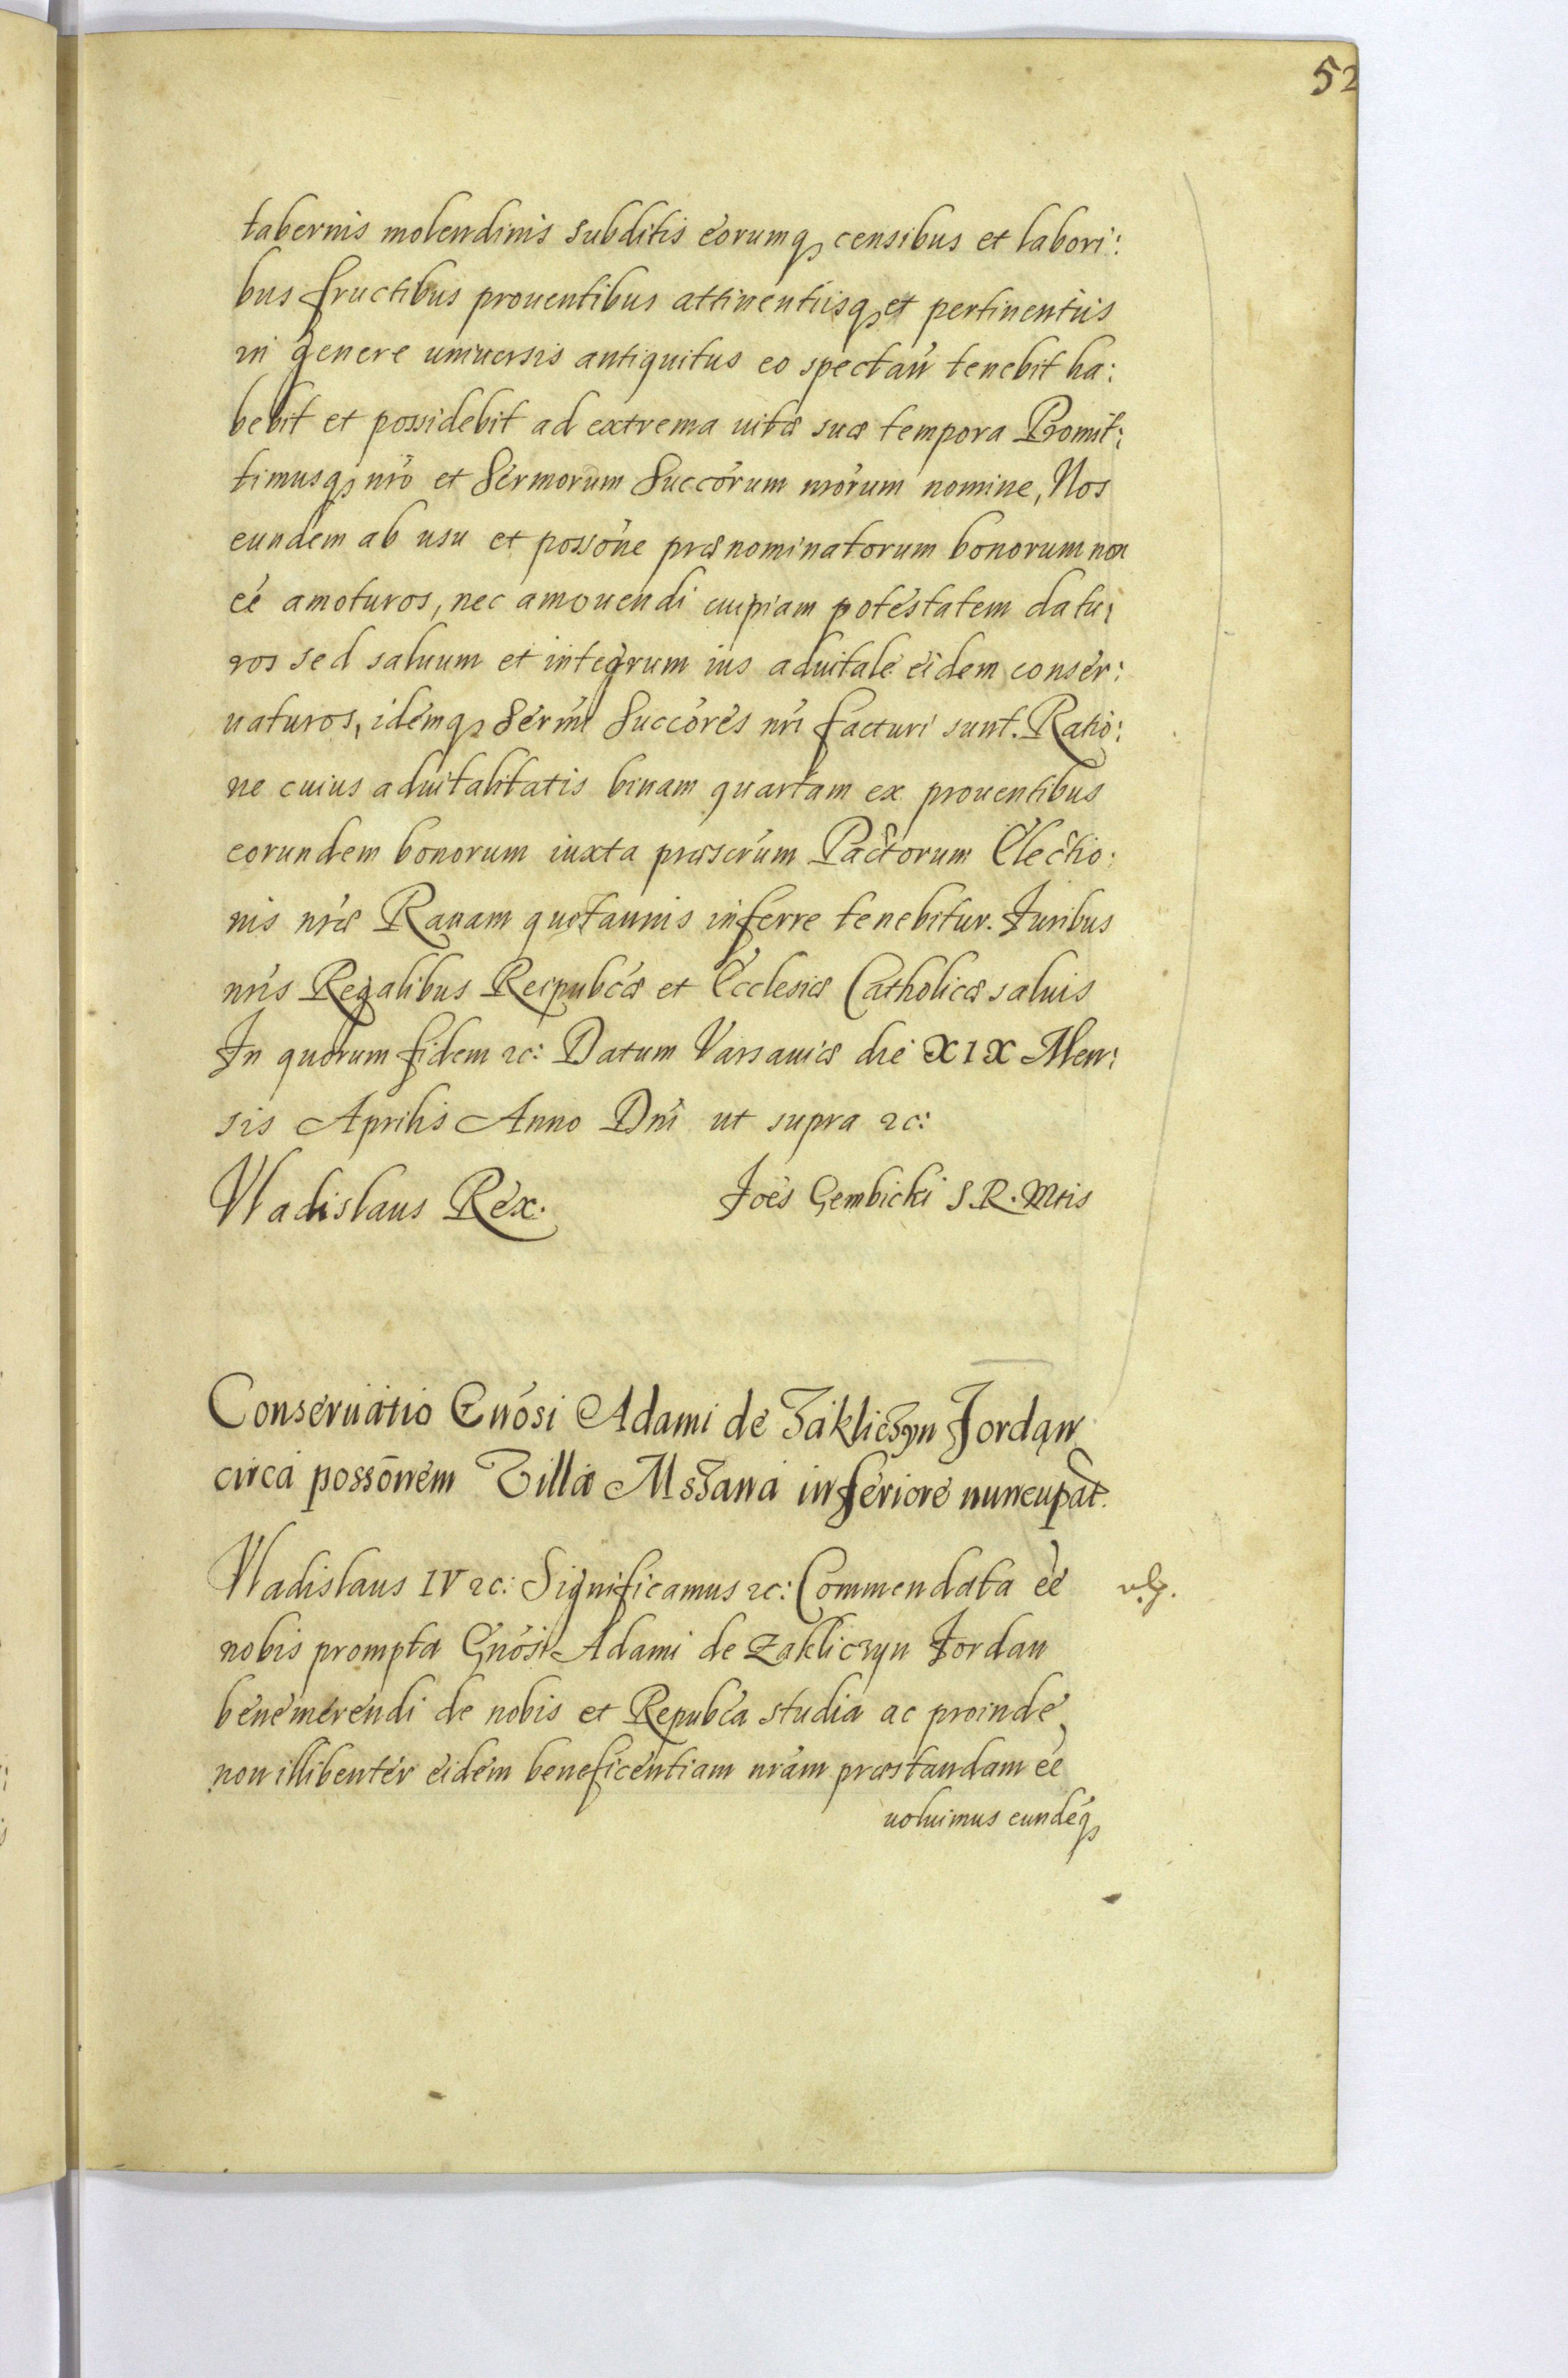 52
tabernis molendinis subditis eorumq₃ censibus et labori:
bus fructibus prouentibus attinentiisq₃ et pertinentiis
in genere uniuersis antiquitus eo spectań tenebit ha:
bebit et possidebit ad extrema uitæ suæ tempora Promit:
timusq₃ nŕo et Sermorum Succórum nrórum nomine, Nos
eundem ab usu et possóne prænominatorum bonorum non
eé amoturos, nec amouendi cuipiam potestatem datu:
ros sed saluum et integrum ius aduitale eidem conser:
uaturos, idemq₃ Sermi Succóres nŕi facturi sunt. Ratio:
ne cuius aduitalitatis binam quartam ex prouentibus
eorundem bonorum iuxta præscrúm Pactorum Electio:
nis nŕæ Rauam quotannis inferre tenebitur. Juribus
nŕis Regalibus Reipubcæ et Ecclesiæ Catholicæ saluis
In quorum fidem ꝛc: Datum Varsauiæ die XIX Men:
sis Aprilis Anno Dńi ut supra ꝛc:
Vladislaus Rex. Joes Gembicki S.R.Mtis
Conseruatio Gnósi Adami de Zakliczyn Jordan
circa possónem Villæ Mszana inferiore nuncupat.
Vladislaus IV ꝛc: Significamus ꝛc: Commendata eé
nobis prompta Gnósi Adami de Zakliczyn Jordan
benemerendi de nobis et Repubca studia ac proinde
non illibenter eidem beneficentiam nŕam præstandam eé
uoluimus eundéq₃